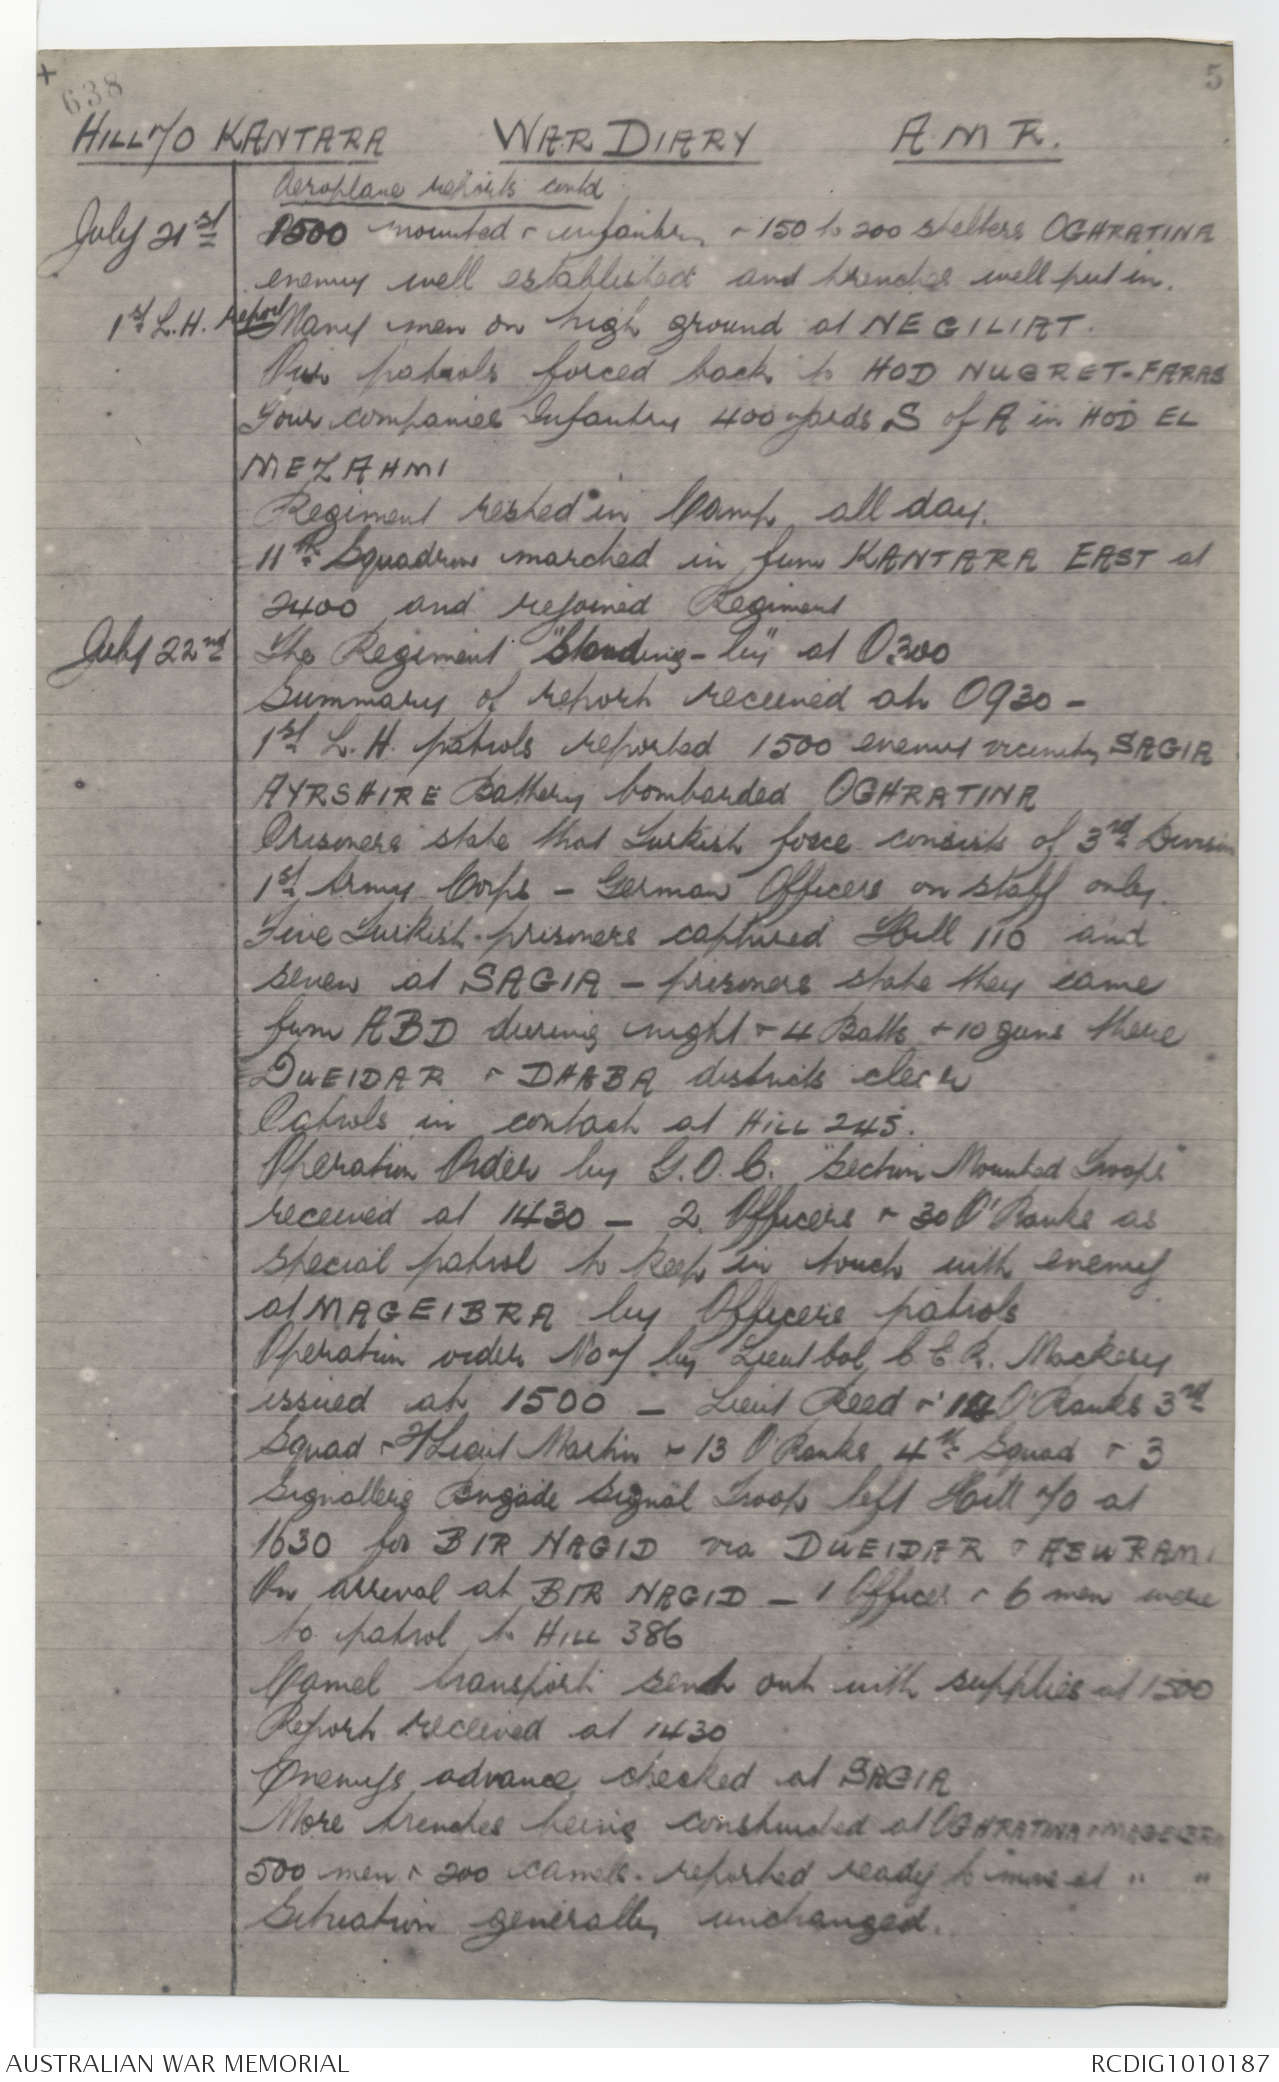 +
638
5
HILL 70 KANTARA WAR DIARY A.M.R.
Aeroplane reports contd
July 21st 1500 mounted & infantry & 150 to 200 shelters OGHRATINA
enemy well established and trenches well put in.
1st L.H. Report Many men on high ground at NEGILIAT.
Our patrols forced back to HOD NUGRET-FARAS
Four companies Infantry 400 yards S of A in HOD EL
MEZAHMI
Regiment rested in Camp all day.
11th Squadron marched in from KANTARA EAST at
2400 and rejoined Regiment
July 22nd The Regiment "Standing-by" at 0300
Summary of report received at 0930 -
1st L.H. patrols reported 1500 enemy vicinity SAGIA
AYRSHIRE Battery bombarded OGHRATINA
Prisoners state that Turkish force consists of 3rd Division
1st Army Corps - German Officers on staff only.
Five Turkish prisoners captured Hill 110 and
seven at SAGIA - prisoners state they came
from ABD during night & 4 Batts & 10 guns there
DUEIDAR & DHABA districts clear
Patrols in contact at HILL 245.
Operation Order by G.O.C. "Section Mounted Troops"
received at 1430 - 2 Officers & 30 O'Ranks as
special patrol to keep in touch with enemy
at MAGEIBRA by Officers patrols
Operation order No 7 by Lieut Col. C.E.R. Mackesy
issued at 1500 - Lieut Reed & 14 O'Ranks 3rd
Squad & Lieut Martin & 13 O'Ranks 4th Squad & 3
Signallers Brigade Signal Troop left Hill 70 at
1630 for BIR NAGID via DUEIDAR & ABU RAMI
On arrival at BIR NAGID - 1 Officer & 6 men were
to patrol to HILL 386
Camel transport sent out with supplies at 1500
Report received at 1430
Enemys advance checked at SAGIA
More trenches being constructed at OGHRATINA & MAGEIBRA
500 men & 200 camels reported ready to move at " "
Situation generally unchanged.
AUSTRALIAN WAR MEMORIAL RCDIG1010187